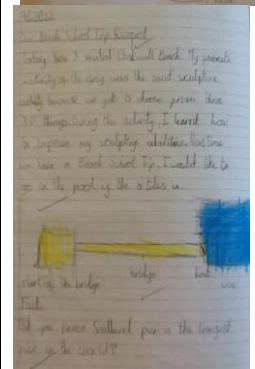 Our Beach School Trip Passport
Today Year 3 visited Chalkwell Beach. My favourite
activity of the day was the sand sculpture
activity because we got to
3D things. During this activity, I learnt how
to improve my sculpting abilities. Next time
we have a Beach School Trip, I would like to
go in the pool if the tides in.
start of the bridge
bridge
boat
sea
Fact
Did you know Southend pier is the longest
pier in the world?